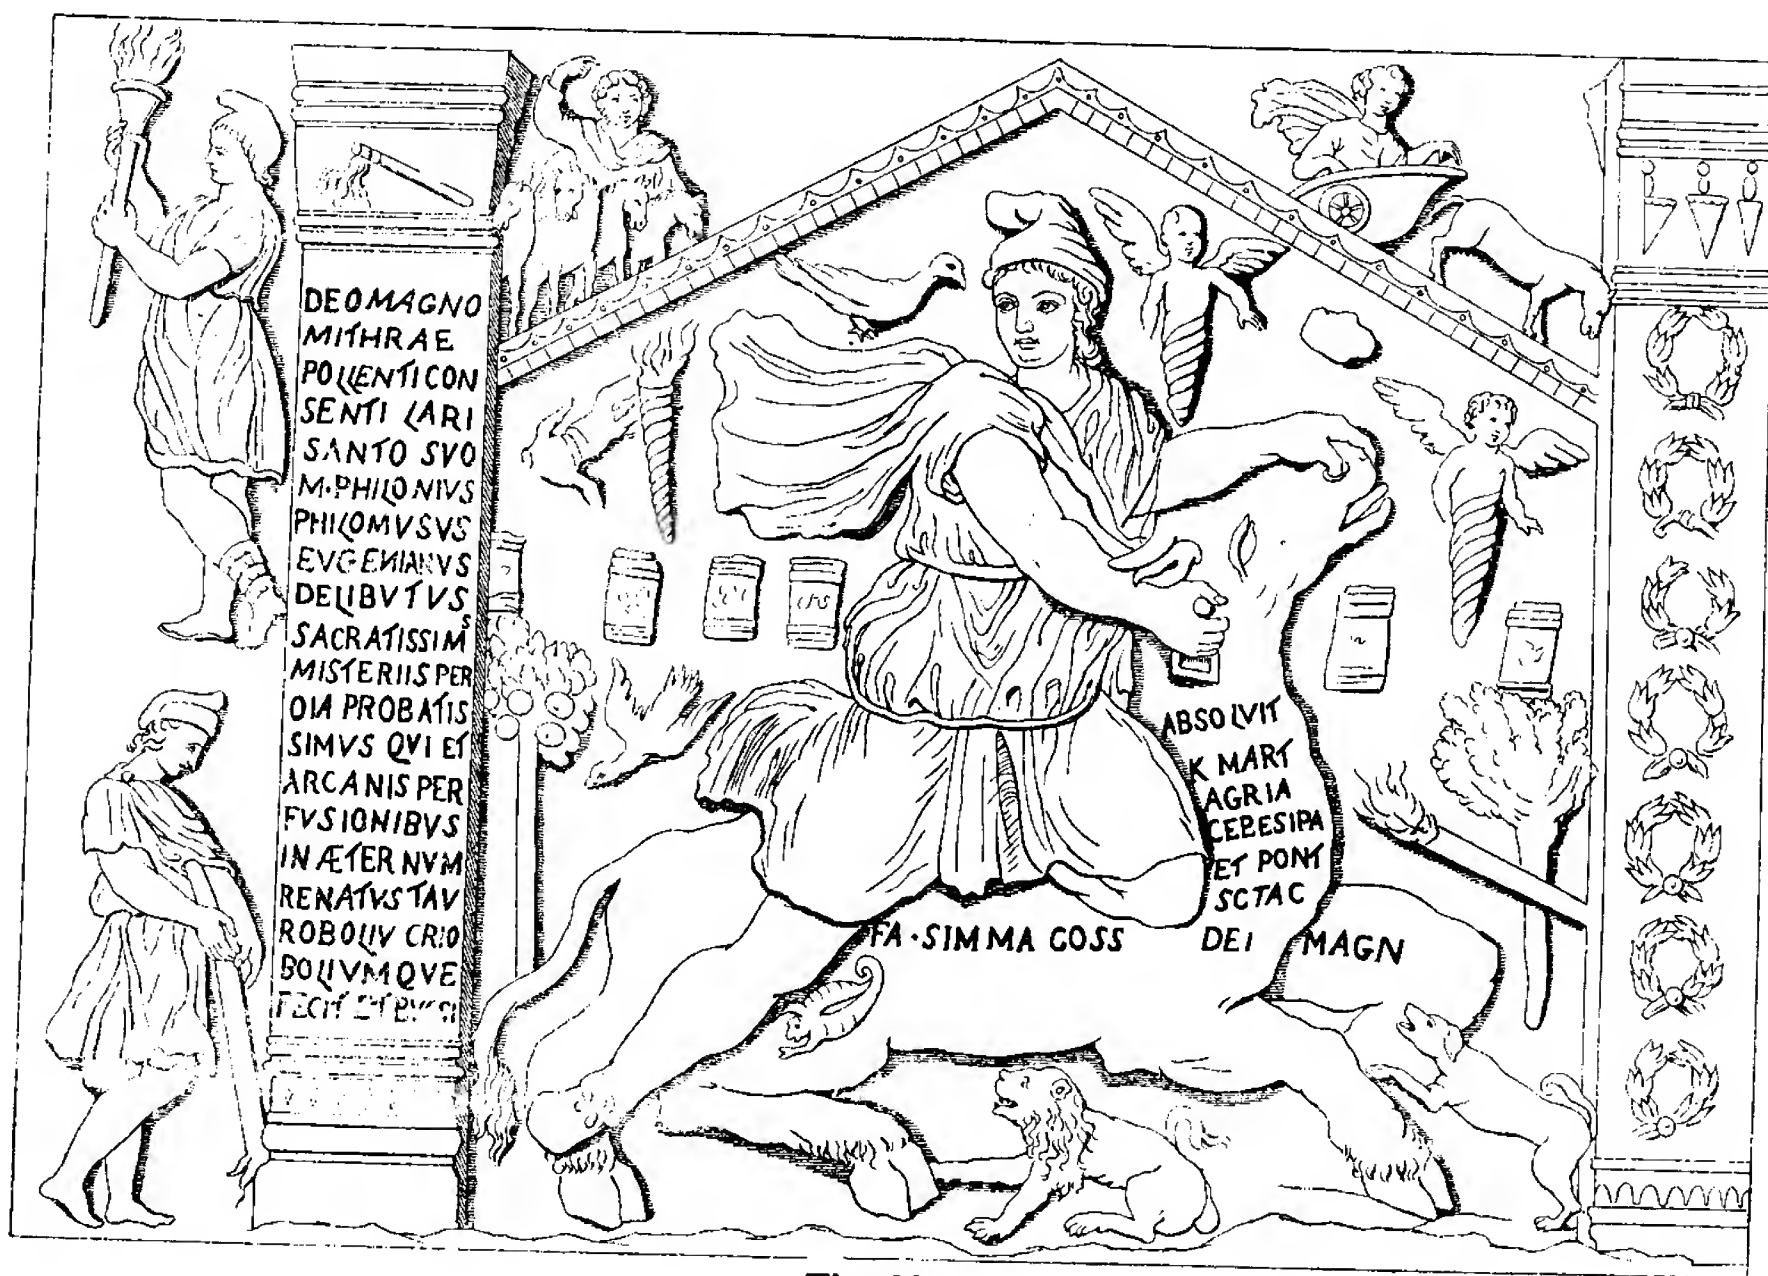 DEO MAGNO
MITHRAE
POLLENTI CON
SENTI LARI
SANTO SVO
M·PHILONIVS
PHILOMVSVS
EVGENIANVS
DELIBVTVS
SACRATISSIMS
MISTERIIS PER
OIA PROBATIS
SIMVS QVI ET
ARCANIS PER
FVSIONIBVS
IN ÆTERNVM
RENATVS TAV
ROBOLIV CRIO
BOLIVMQVE
FECIT ET
ABSOLVIT
K MART
AGRIA
CEBESIPA
ET PONT
SCTAC
FA·SIMMA COSS DEI MAGN